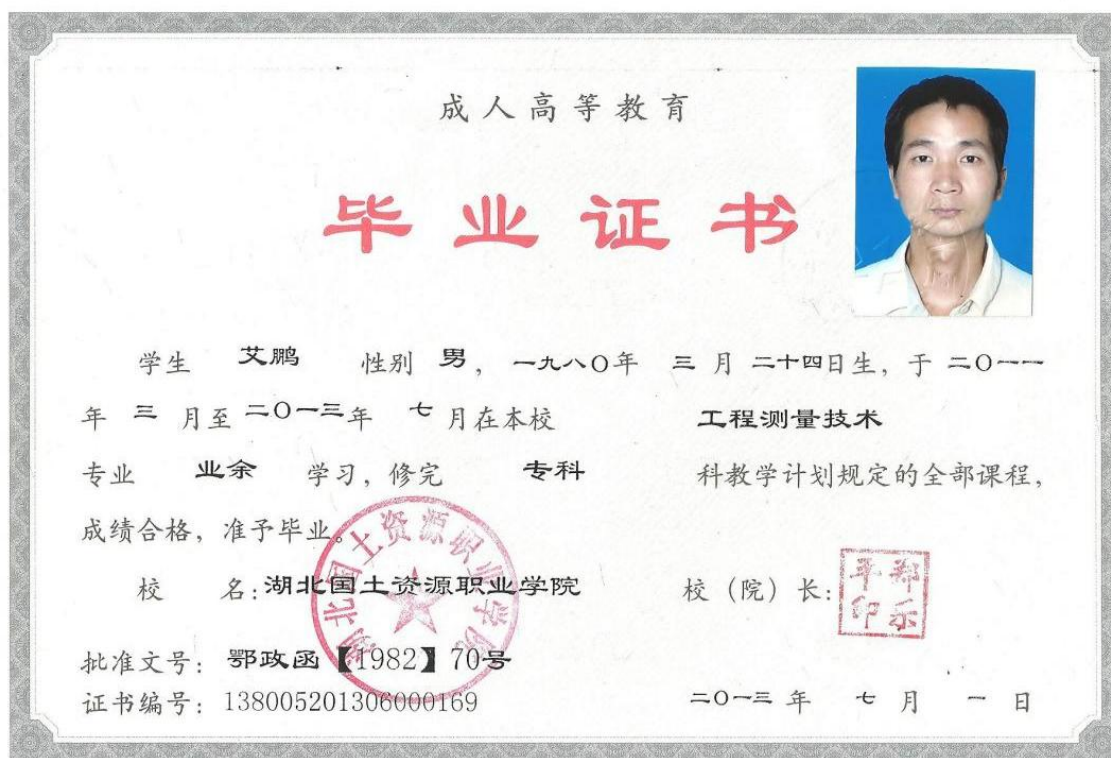 成人高等教育
毕业证书
学生 艾鹏 性别 男，一九八〇年 三 月 二十四日生，于 二〇一一
年 三 月至 二〇一三年 七 月在本校 工程测量技术
专业 业余 学习，修完 专科 科教学计划规定的全部课程，
成绩合格，准予毕业。
校 名：湖北国土资源职业学院 校（院）长：
湖北国土资源职业学院
批准文号：鄂政函【1982】70号
证书编号：138005201306000169 二〇一三年 七 月 一 日